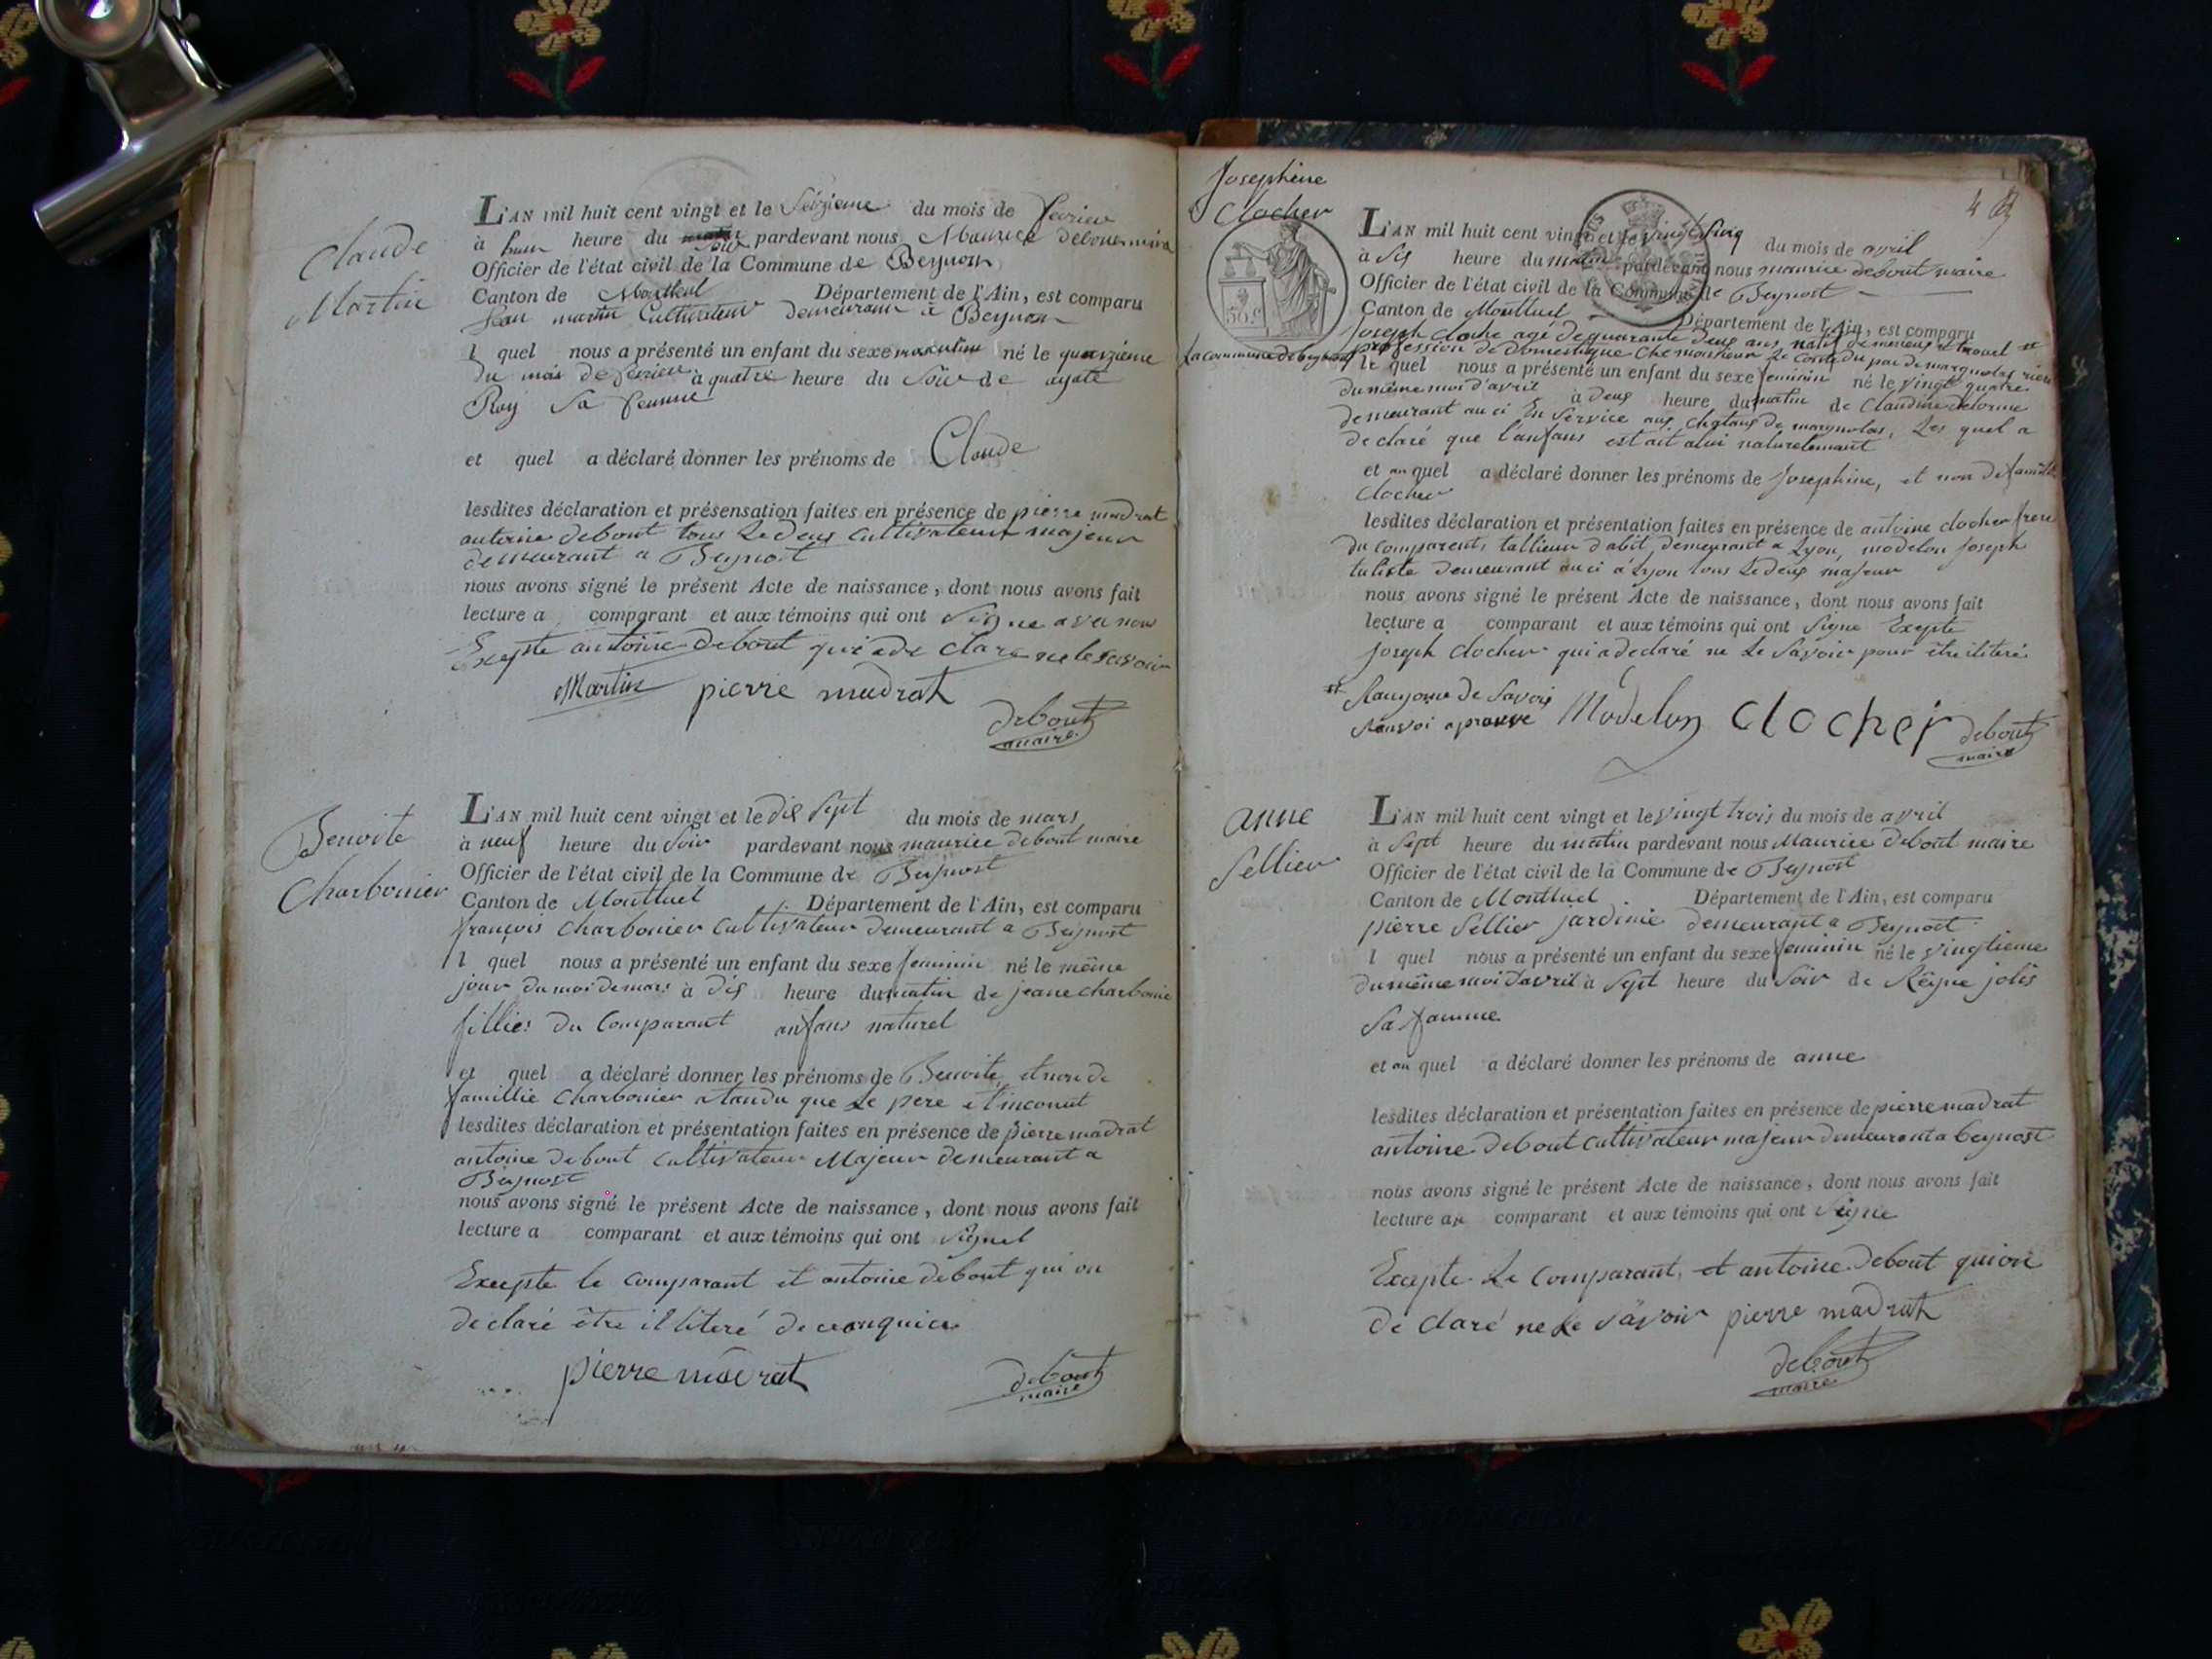 Claude
Martin
L'AN mil huit cent vingt et le Seizieme du mois de fevrier
à huit heure du soir pardevant nous Maurice debout maire
Officier de l'état civil de la Commune de Beynost
Canton de Montluel Département de l'Ain, est comparu
Jean martin Cultivateur demeurant a Beynost
l quel nous a présenté un enfant du sexe masculin né le quinzieme
du mois de fevrier à quatre heure du Soir de agate
Roy Sa femme
et quel a déclaré donner les prénoms de Claude
lesdites déclaration et présensation faites en présence de pierre madrat
antoine debout tous Le deux Cultivateur majeur
demeurant a Beynost
nous avons signé le présent Acte de naissance, dont nous avons fait
lecture a comparant et aux témoins qui ont Signe avec nous
Excepte antoine debout qui a de clare ne le savoir
Martin pierre madrat
debout
maire
Benoite
Charbonier
L'AN mil huit cent vingt et le dix Sept du mois de mars
à neuf heure du Soir pardevant nous maurice debout maire
Officier de l'état civil de la Commune de Beynost
Canton de Montluel Département de l'Ain, est comparu
françois Charbonier Cultivateur demeurant a Beynost
l quel nous a présenté un enfant du sexe feminin né le même
jour du moi de mars à dix heure du matin de jeane charbonie
fillies du Comparant anfans naturel
et quel a déclaré donner les prénoms de Benoite, et non de
famillie Charbonier atandu que Le pere et inconut
lesdites déclaration et présentation faites en présence de pierre madrat
antoine debout Cultivateur Majeur demeurant a
Beynost
nous avons signé le présent Acte de naissance, dont nous avons fait
lecture a comparant et aux témoins qui ont Signel
Excepte le Comparant et antoine debout qui on
declaré être illiteré de ce anquice
pierre madrat
debout
maire
Josephine
Clocher
4
L'AN mil huit cent vingt et le vingt Sinq du mois de avril
à Six heure du matin pardevant nous maurice debout maire
Officier de l'état civil de la Commune de Beynost
Canton de Montluel Département de l'Ain, est comparu
Joseph Cloche agé de quarante deux ans, natif de
profession de Domestique Che monsieur Le Conte du par de margnolas
La commune de beynost le quel nous a présenté un enfant du sexe feminin né le vingt quatre
du même moi d'avril à deux heure du matin de Claudine delorme
demeurant au ci En Service aux chataus de margnolas, Les quel a
declaré que l'anfans estait alui naturelemant
et au quel a déclaré donner les prénoms de Josephine, et non de famille
Clocher
lesdites déclaration et présentation faites en présence de antoine clocher frere
du comparent, tallieur d'abit, demeurant a Lyon, modelon Joseph
tuliste demeurant au ci a Lyon tous Le deux majeur
nous avons signé le présent Acte de naissance, dont nous avons fait
lecture a comparant et aux témoins qui ont Signe Excepte
Joseph Clocher qui a declaré ne Le Savoir pour être iliteré
Modelon Clocher debout
maire
anne
Sellier
L'AN mil huit cent vingt et le vingt trois du mois de avril
à Sept heure du matin pardevant nous Maurice debout maire
Officier de l'état civil de la Commune de Beynost
Canton de Montluel Département de l'Ain, est comparu
pierre Sellier jardinie demeurant a Beynost
l quel nous a présenté un enfant du sexe feminin né le vingtieme
du même moi d'avril à Sept heure du Soir de Rëgne jolis
Sa famme
et au quel a déclaré donner les prénoms de anne
lesdites déclaration et présentation faites en présence de pierre madrat
antoine debout Cultivateur majeur demeurent a beynost
nous avons signé le présent Acte de naissance, dont nous avons fait
lecture au comparant et aux témoins qui ont Signe
Excepte Le Comparant, et antoine debout qui on
de claré ne Le Savoir pierre madrat
debout
maire